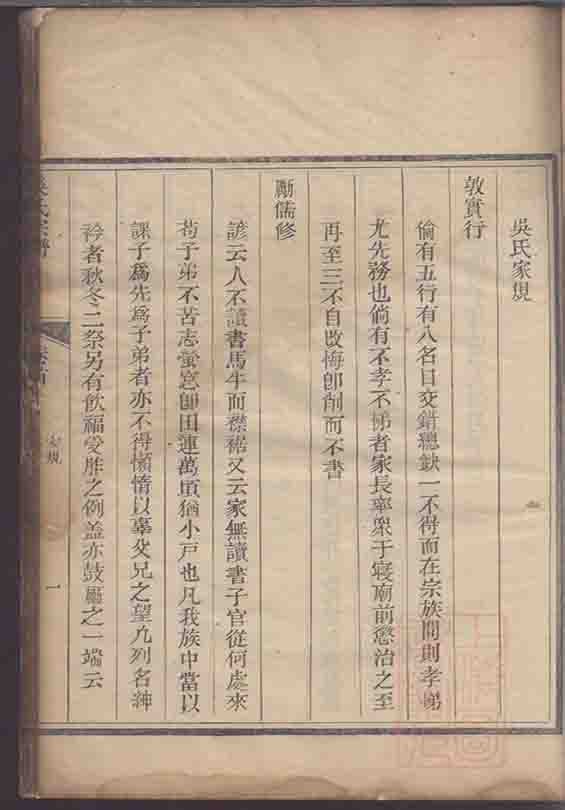 吳氏家規
敦實行
倫有五行有八名目交錯總缺一不得而在宗族間則孝悌
尤先務也倘有不孝不悌者家長率眾于寢廟前懲治之至
再至三不自改悔卽削而不書
勵儒修
諺云人不讀書馬牛而襟裾又云家無讀書子官從何處來
苟子弟不苦志螢窓卽田連萬頃猶小戶也凡我族中當以
課子爲先爲子弟者亦不得懶惰以辜父兄之望凡列名紳
衿者秋冬二祭另有飲福受胙之例盖亦鼓勵之一端云
吳氏宗譜
卷首
家規
一